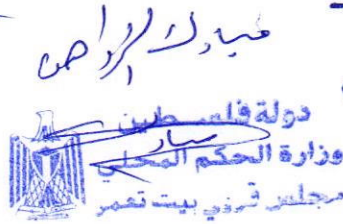 مبارك الزواهره
دولة فلسطين
وزارة الحكم المحلي
مجلس قروي بيت تعمر